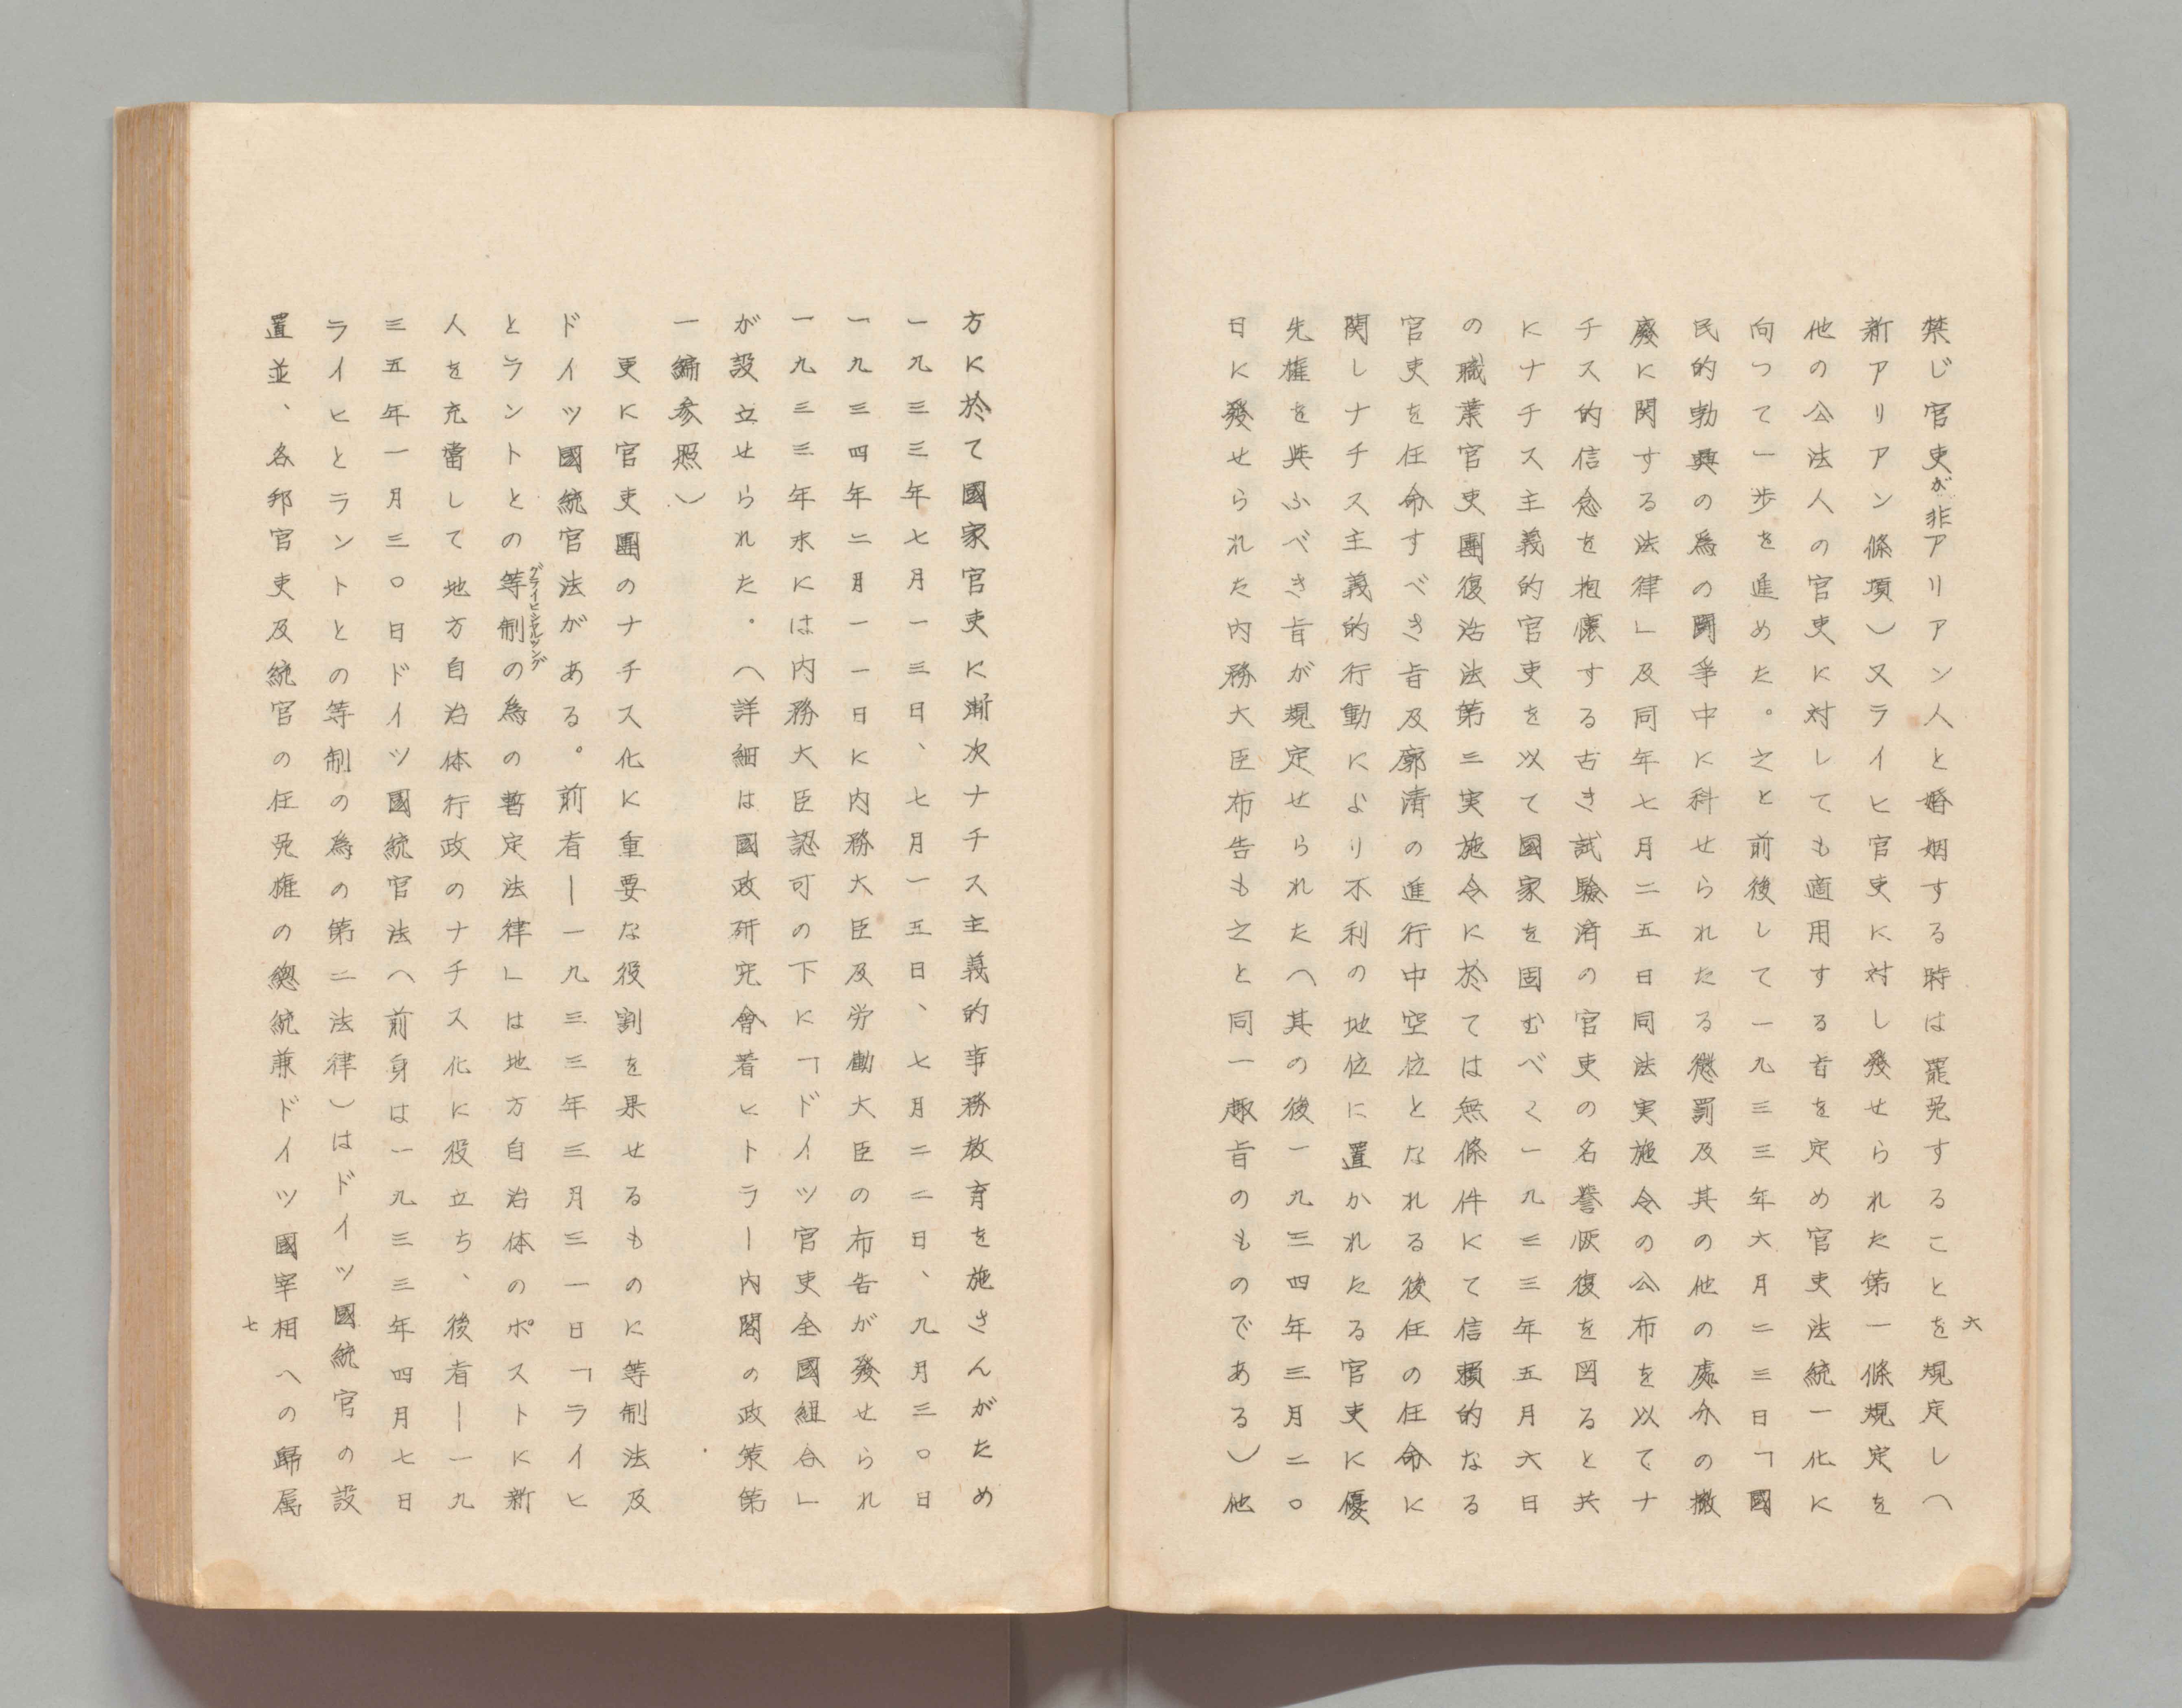 六
禁じ官吏が非アリアン人と婚姻する時は罷免することを規定し（
新アリアン條項）又ライヒ官吏に対し發せられた第一條規定を
他の公法人の官吏に対しても適用する旨を定め官吏法統一化に
向つて一歩を進めた。之と前後して一九三三年六月二三日「國
民的勃興の為の闘爭中に科せられたる懲罰及其の他の處分の撤
廢に関する法律」及同年七月二五日同法実施令の公布を以てナ
チス的信念を抱懐する古き試驗済の官吏の名譽恢復を図ると共
にナチス主義的官吏を以て國家を固むべく一九三三年五月六日
の職業官吏團復活法第三実施令に於ては無條件にて信頼的なる
官吏を任命すべき旨及廓清の進行中空位となれる後任の任命に
関しナチス主義的行動により不利の地位に置かれたる官吏に優
先権を與ふべき旨が規定せられた（其の後一九三四年三月二〇
日に發せられた内務大臣布告も之と同一趣旨のものである）他
方に於て國家官吏に漸次ナチス主義的事務教育を施さんがため
一九三三年七月一三日、七月一五日、七月二二日、九月三〇日
一九三四年二月一一日に内務大臣及労働大臣の布告が發せられ
一九三三年末には内務大臣認可の下に「ドイツ官吏全國組合」
が設立せられた・（詳細は國政研究會著ヒトラー内閣の政策第
一編参照）
更に官吏團のナチス化に重要な役割を果せるものに等制法及
ドイツ國統官法がある。前者ー一九三三年三月三一日「ライヒ
とラントとの等制グライヒシヤルツングの為の暫定法律」は地方自治体のポストに新
人を充當して地方自治体行政のナチス化に役立ち、後者ー一九
三五年一月三〇日ドイツ國統官法（前身は一九三三年四月七日
ライヒとラントとの等制の為の第二法律）はドイツ國統官の設
置並、各邦官吏及統官の任免権の總統兼ドイツ國宰相への歸属
七